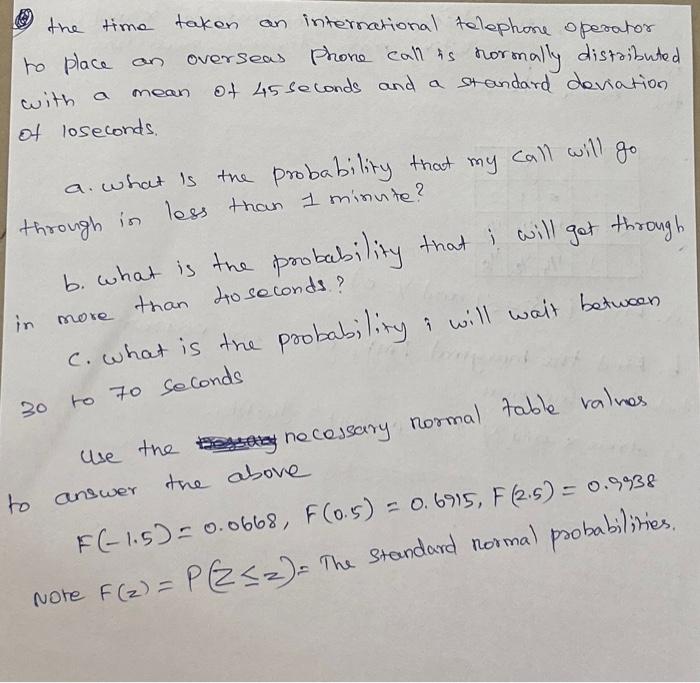 the time taken an international telephone operator
to place an overseas phone call is normally distributed
with a mean of 45 seconds and a standard deviation
of 10seconds.
a. what is the probability that my call will go
through in less than 1 minute?
b. what is the probability that i will get through
in more than 40 seconds?
c. what is the probability i will wait between
30 to 70 seconds
Use the necessary normal table values
to answer the above
F(-1.5) = 0.0668, F(0.5) = 0.6915, F(2.5) = 0.9938
Note F(z) = P(Z ≤ z) = The Standard normal probabilities.